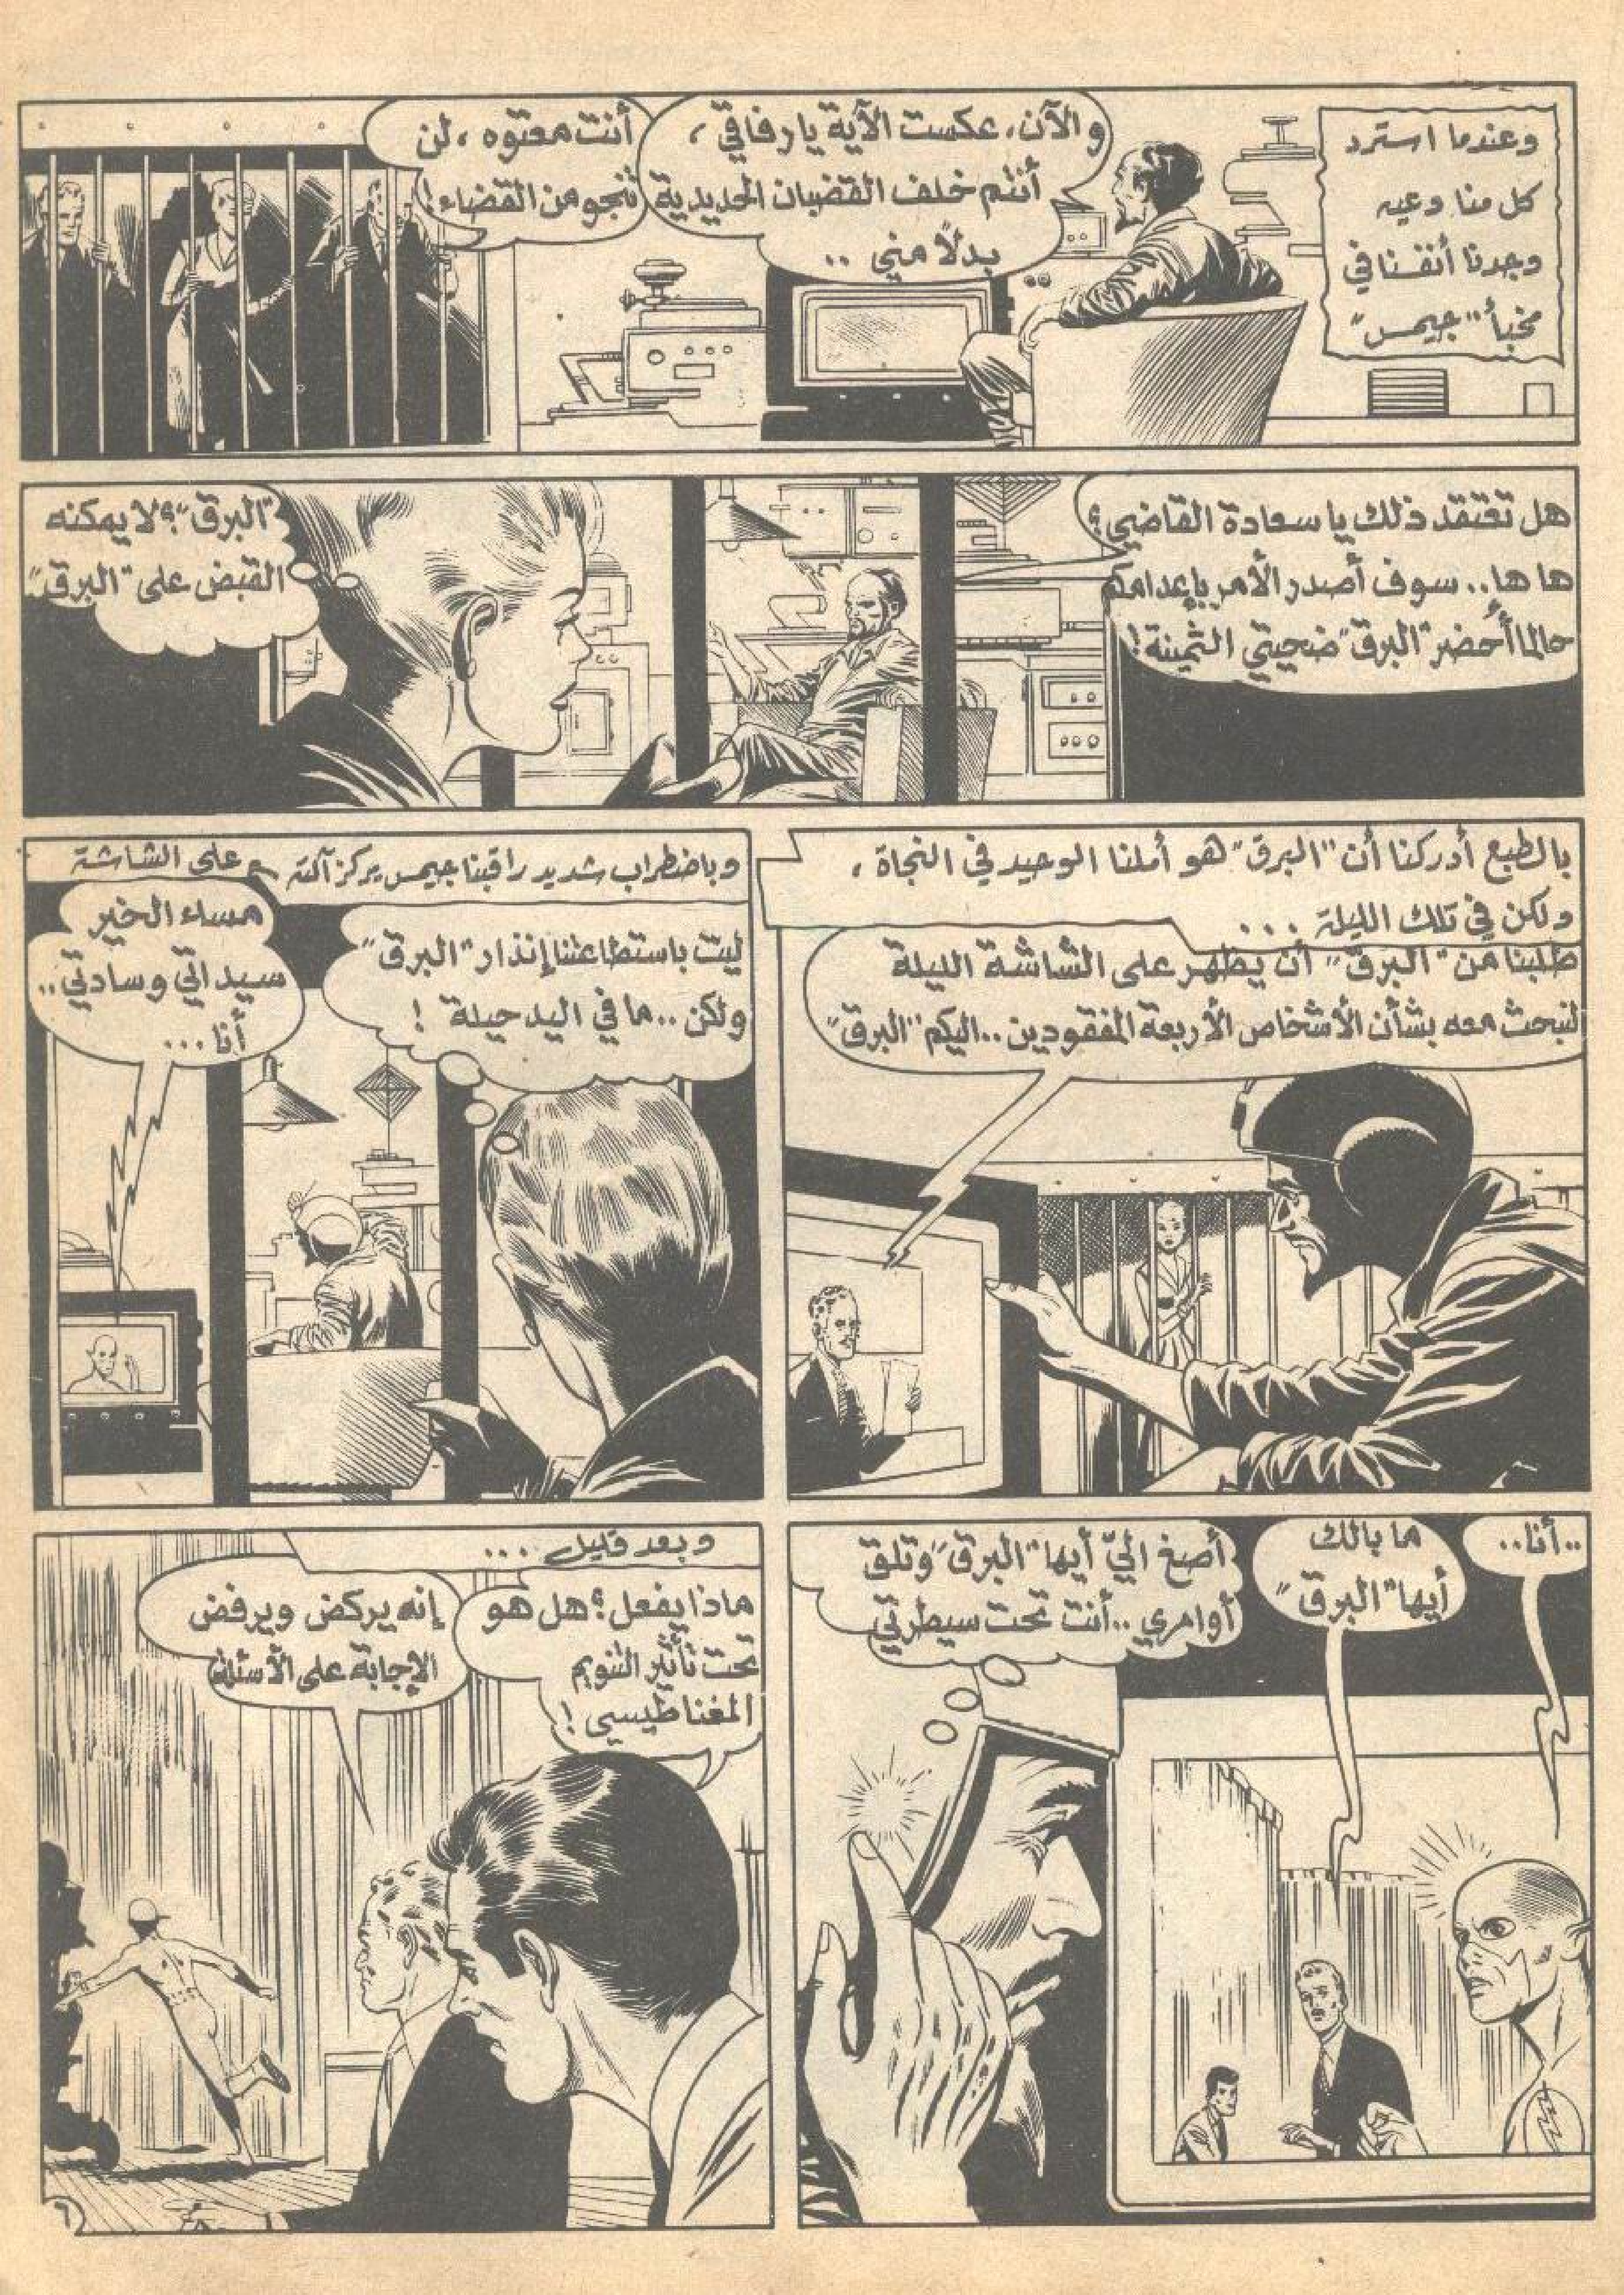 وعندما استرد
كل منا وعيه
وجدنا أنفسنا في
مخبأ "جيمس"
والآن، عكست الآية يا رفاقي،
أنتم خلف القضبان الحديدية
بدلاً مني ..
أنت معتوه، لن
تنجو من القضاء!
هل تعتقد ذلك يا سعادة القاضي؟
ها ها.. سوف أصدر الأمر بإعدامكم
حالما أحضر "البرق" ضحيتي الثمينة!
"البرق"؟ لا يمكنه
القبض على "البرق"
بالطبع أدركنا أن "البرق" هو أملنا الوحيد في النجاة،
ولكن في تلك الليلة ...
طلبنا من "البرق" أن يظهر على الشاشة الليلة
لنبحث معه بشأن الأشخاص الأربعة المفقودين.. اليكم "البرق"
وباضطراب شديد راقبنا جيمس يركز آلته على الشاشة
ليت باستطاعتنا إنذار "البرق"
ولكن.. ما في اليد حيلة!
مساء الخير
سيداتي وسادتي..
أنا ...
..أنا..
ما بالك
أيها "البرق"
أصغ اليّ أيها "البرق" وتلق
أوامري.. أنت تحت سيطرتي
وبعد قليل ...
ماذا يفعل؟ هل هو
تحت تأثير التنويم
المغناطيسي!
إنه يركض ويرفض
الإجابة على الأسئلة
٦